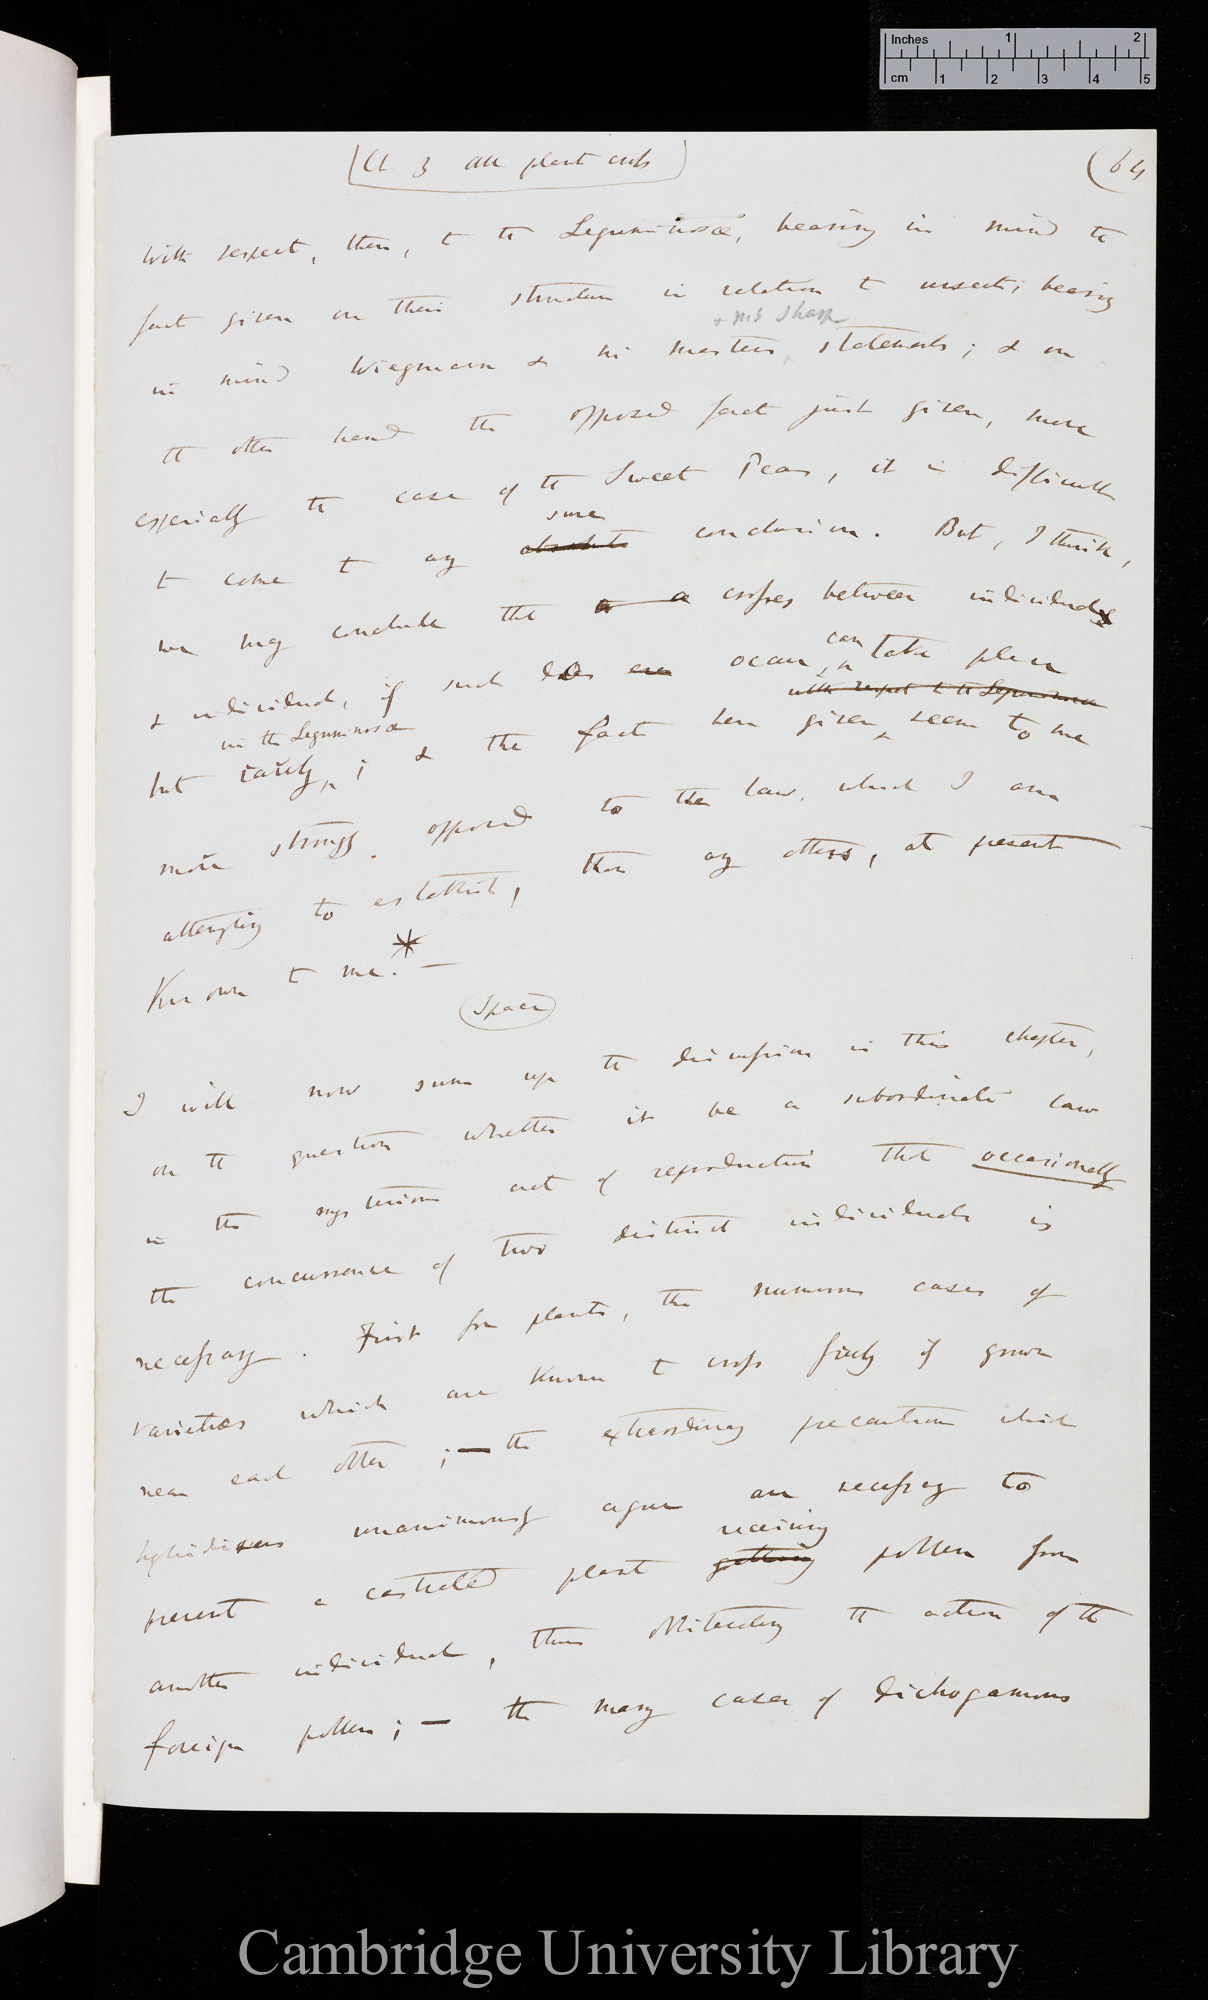 Ch 3 All plant ends
64
With respect, then, to the Leguminosæ, bearing in mind the
facts given on their structure in relation to insects; bearing
+ Mr Sharp
in mind Wiegmann & Mr Masters statements; & on
the other hand the opposed facts just given, more
especially the case of the Sweet Peas, it is difficult
sure
to come to any absolute conclusion. But, I think,
we may conclude that a crosses between individual
can
& individual, if such does ever occur, take place
with respect to the Leguminosæ
in the Leguminosæ
but rarely; & the facts here given seem to me
more strongly opposed to the law, which I am
attempting to establish, than any others, at present
known to me.* —
(Space)
I will now sum up the discussion in this chapter,
on the question whether it be a subordinate law
in the mysterious act of reproduction that occasionally
the concurrence of two distinct individuals is
necessary. First for plants, the numerous cases of
varieties which are known to cross freely if grown
near each other; — the extraordinary precautions which
hybridisers unanimously agree are necessary to
receiving
prevent a castrated plant getting pollen from
another individual, thus obliterating the action of the
foreign pollen; — the many cases of dichogamous
Inches 1 2
cm 1 2 3 4 5
Cambridge University Library